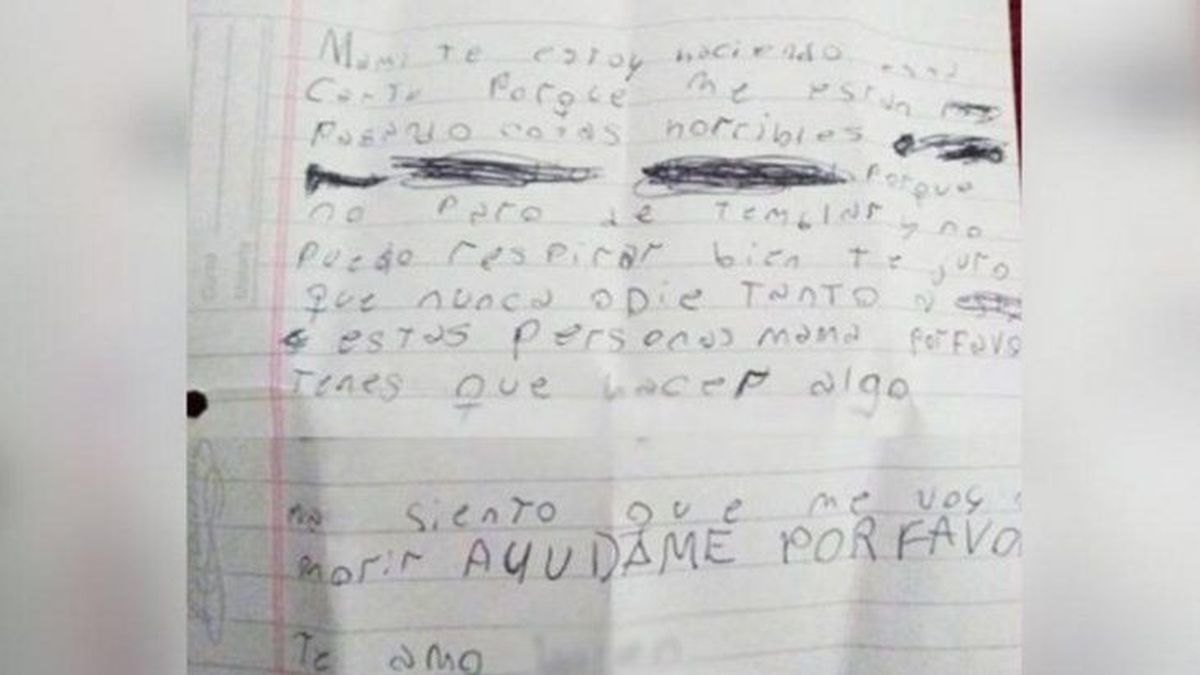 Mami te estoy haciendo esta
Carta Porque me están
Pasando cosas horribles
Porque
no Paro de Temblar y no
Puedo respirar bien te juro
Que nunca odie TANTO a
estas Personas mama Porfavo
Tenes Que hacer algo
siento que me voy
morir AYUDAME POR FAVO
Te amo